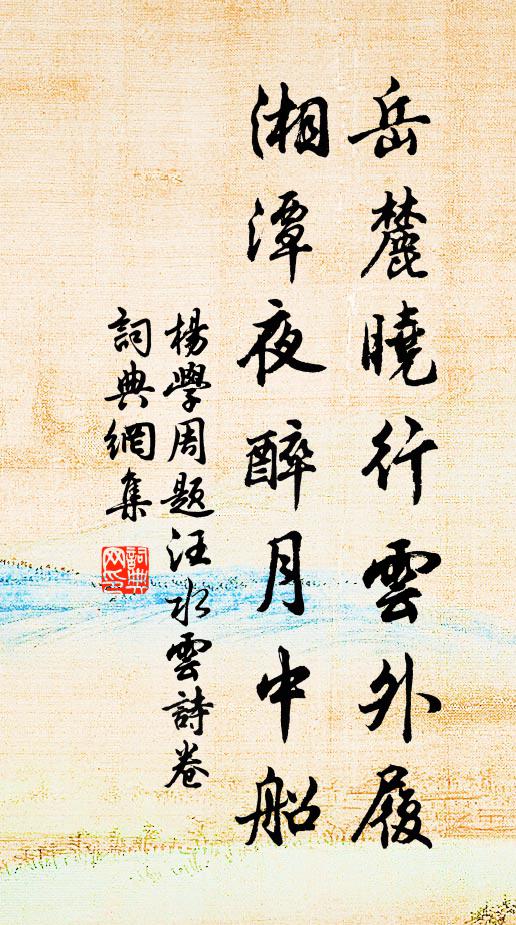 岳麓曉行雲外履
湘潭夜醉月中船
楊學周題汪水雲詩卷
詞典網集
詞典網印